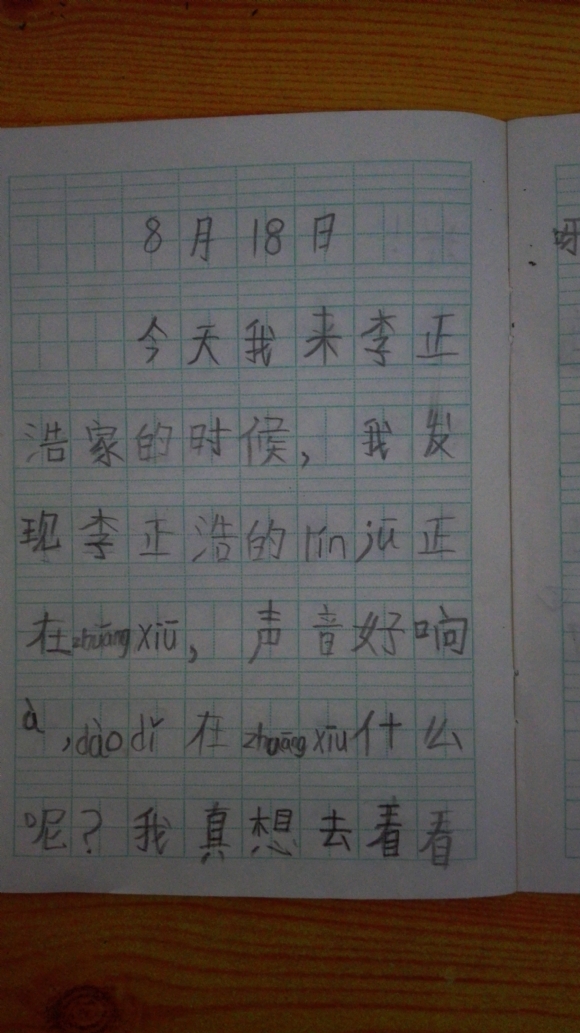 8月18日
今天我来李正
浩家的时候，我发
现李正浩的lín jū正
在zhuāng xiū，声音好响
à，dào dǐ在zhuāng xiū什么
呢？我真想去看看
呀